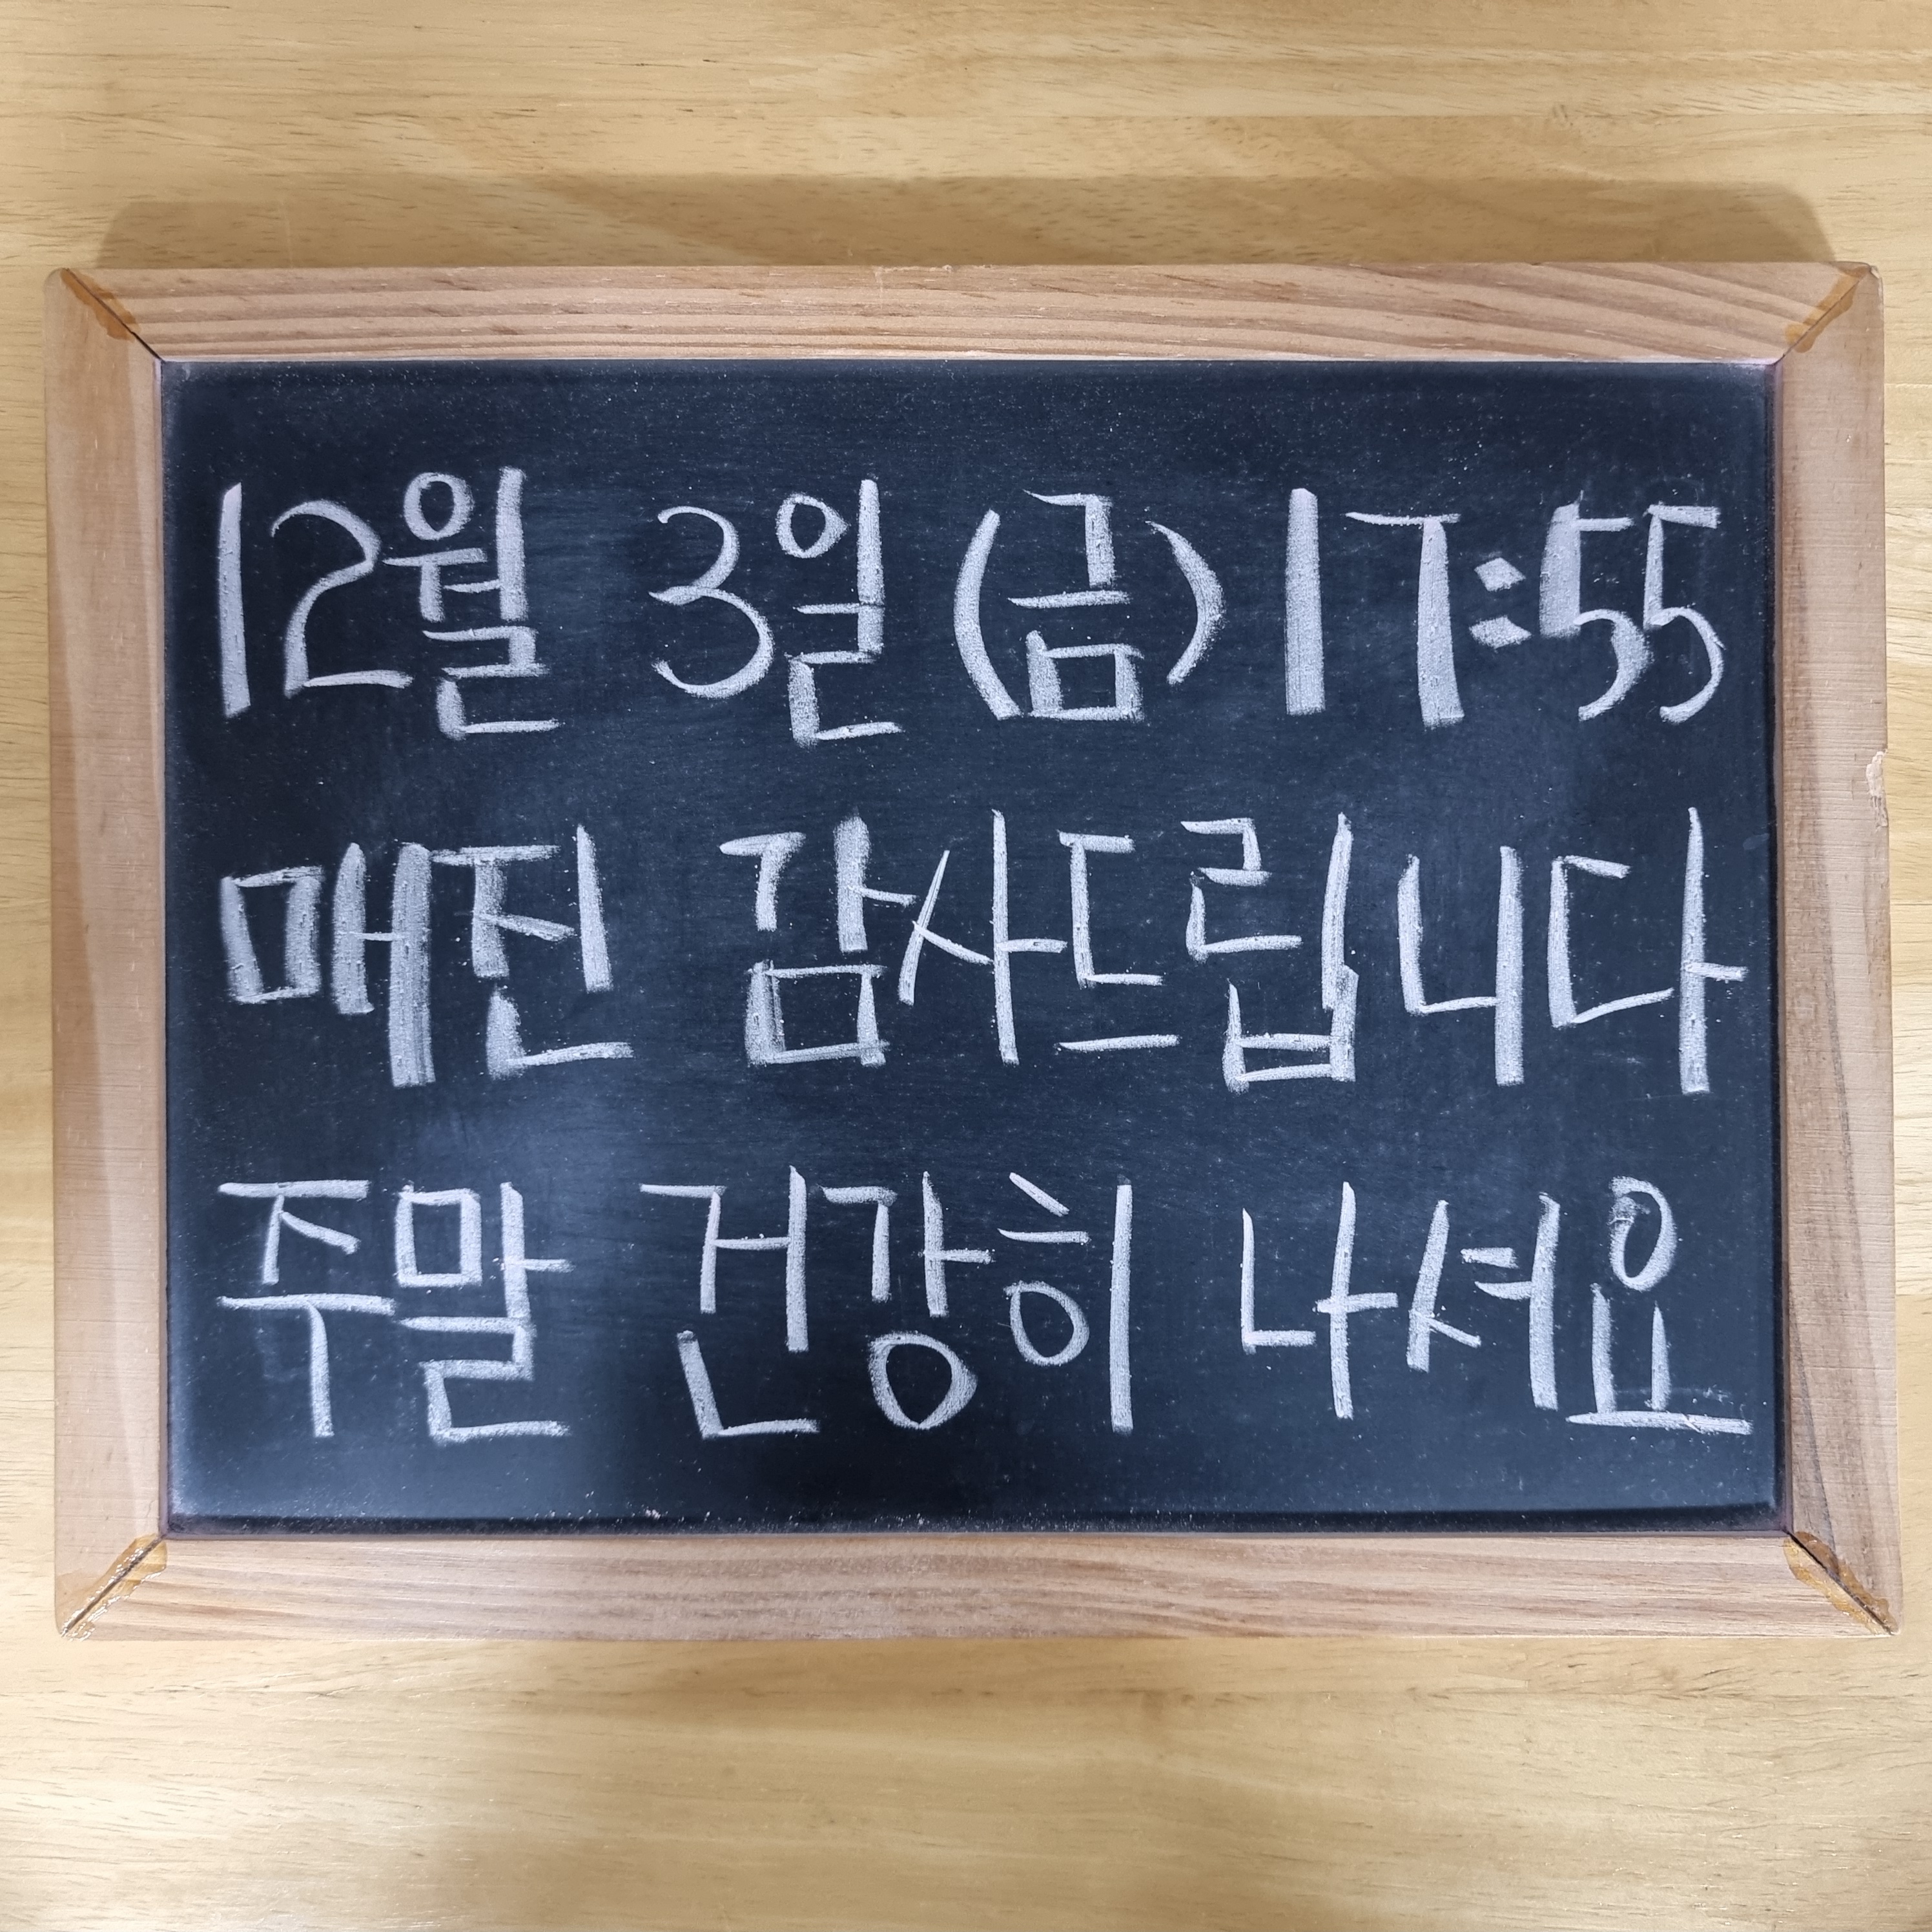 12월 3일 (금) 17:55
매진 감사드립니다
주말 건강히 나셔요